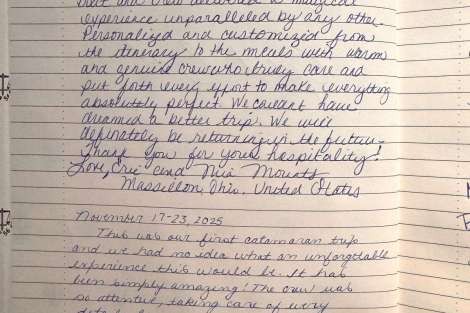 experience unparalleled by any other.
Personalized and customized from
the itinerary to the meals with warm
and genuine crew who truly care and
put forth every effort to make everything
absolutely perfect. We couldnt have
dreamed a better trip. We will
definately be returning in the future.
Thank you for your hospitality!
Love, Eric and Nia Mounts
Massillon, Ohio, United States
November 17-23, 2025
This was our first catamaran trip
and we had no idea what an unforgettable
experience this would be. It has
been simply amazing! The crew was
so attentive, taking care of every